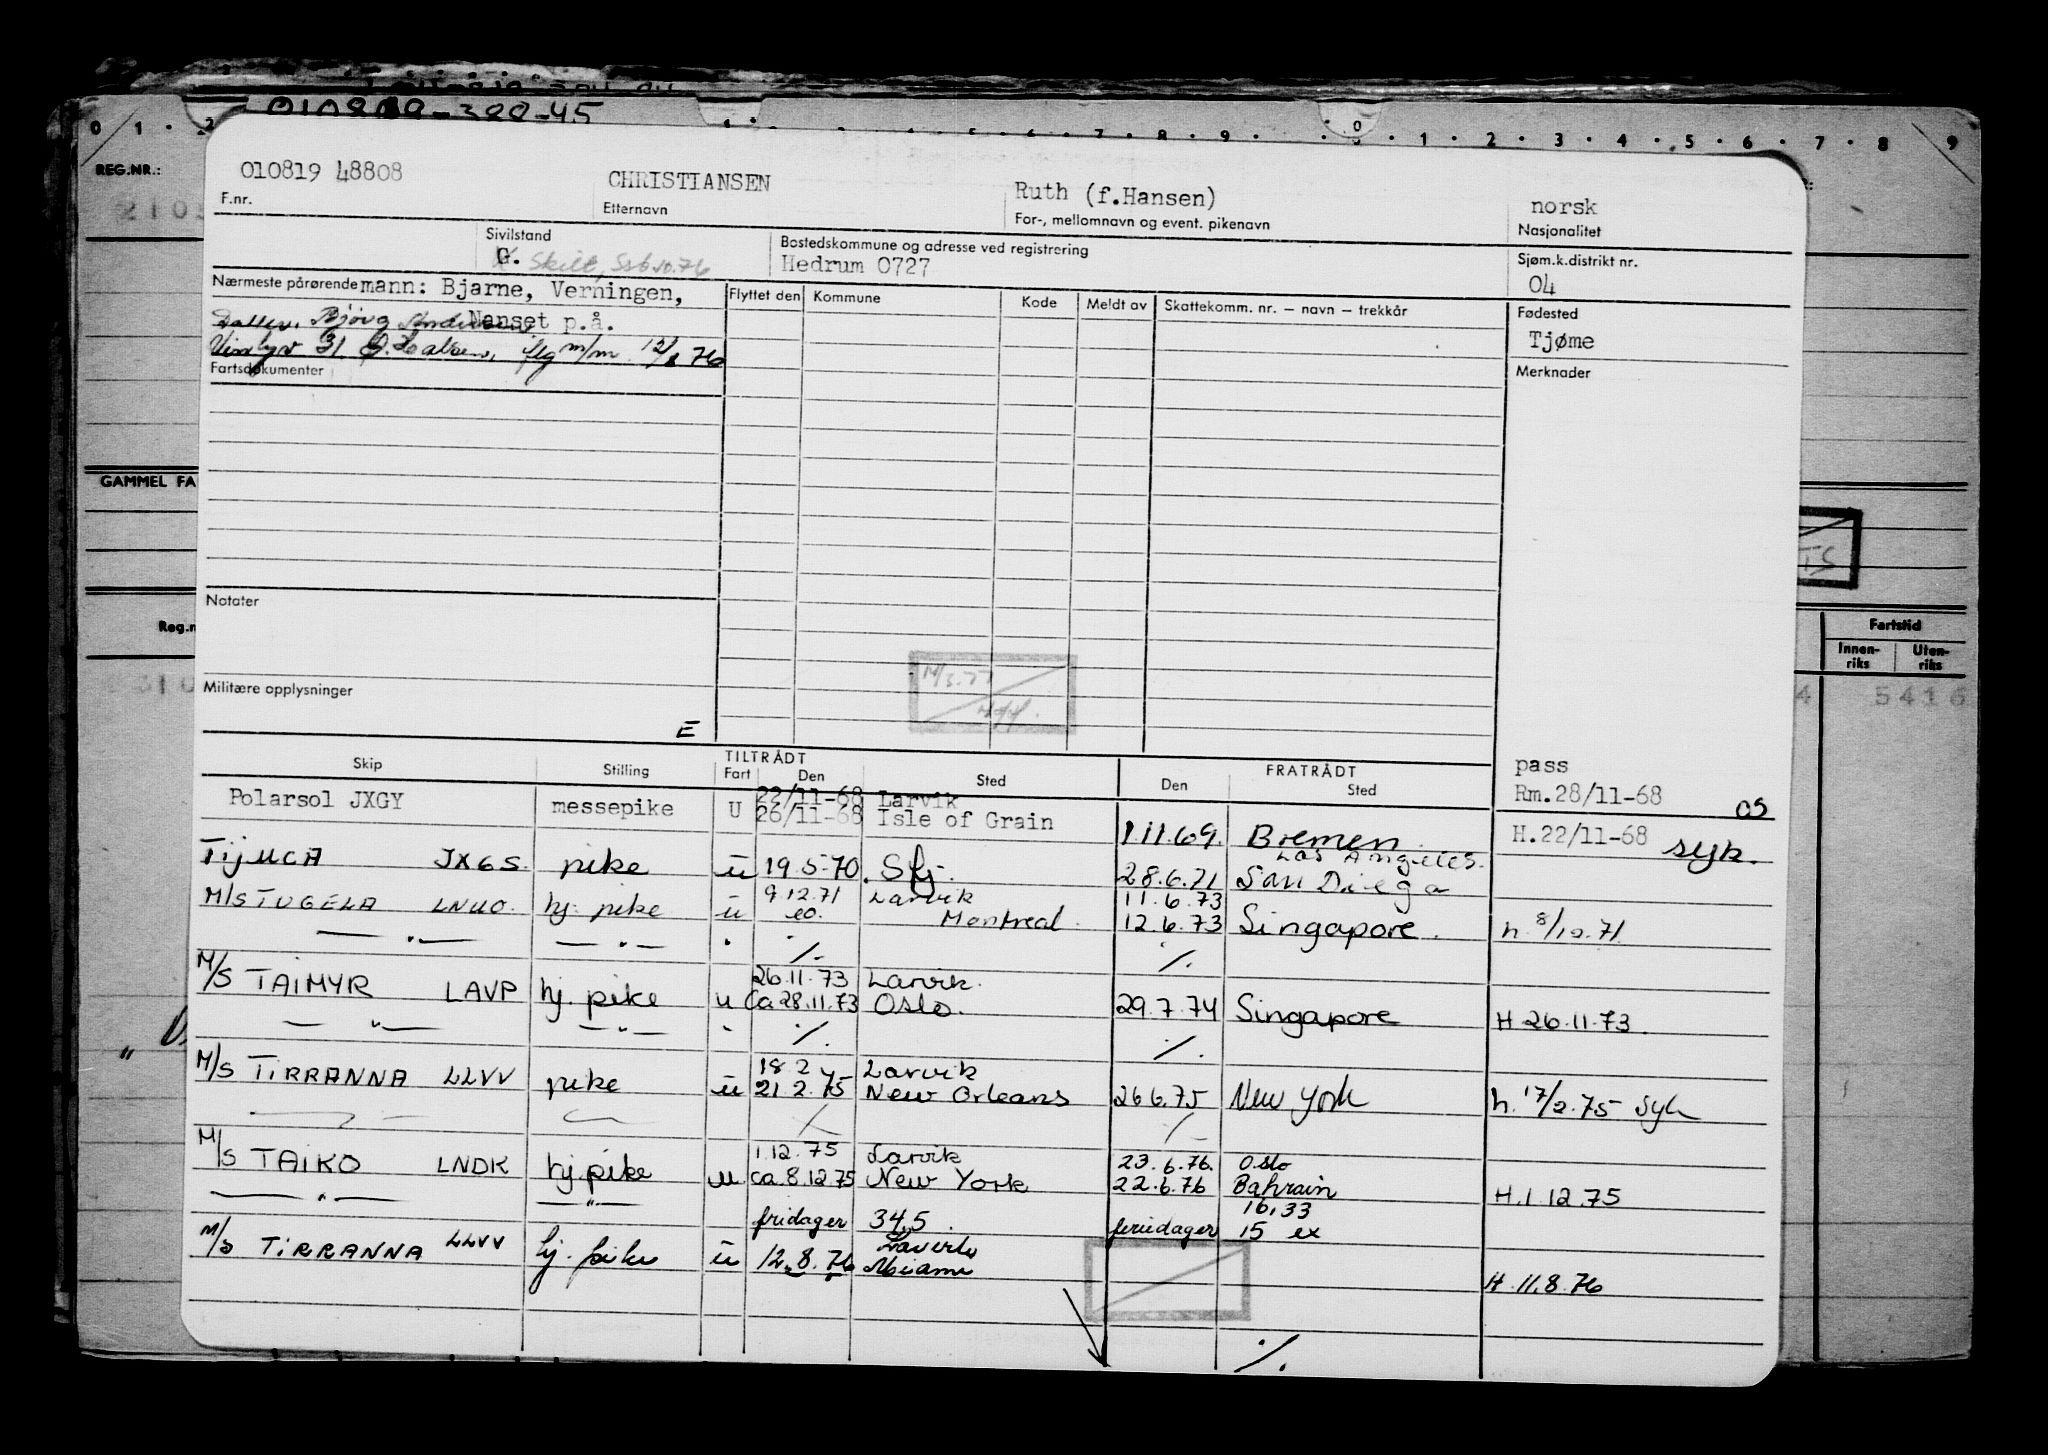 010819-380-45
REG.NR.:
010819 48808
CHRISTIANSEN
Ruth (f.Hansen)
norsk
F.nr.
Etternavn
For-, mellomnavn og event. pikenavn
Nasjonalitet
Sivilstand
Bostedskommune og adresse ved registrering
Sjøm.k.distrikt nr.
G. Skilt,
Hedrum 0727
04
Nærmeste pårørende mann: Bjarne, Verningen,
Flyttet den Kommune Kode Meldt av Skattekomm. nr. – navn – trekkår
Fødested
Nanset p.å.
Datter, Bjørg
Tjøme
Fartsdokumenter
Merknader
GAMMEL FA
Notater
Reg.n
Fartstid
Innen-riks
Uten-riks
Militære opplysninger
E
5416
TILTRÅDT
FRATRÅDT
Skip Stilling Fart Den Sted Den Sted
pass
Rm.28/11-68 OS
22/11-68 Larvik
Polarsol JXGY messepike U 26/11-68 Isle of Grain 1.11.69. Bremen. H.22/11-68 syk.
Los Angeles.
TijUCA JXGS pike u 19.5.70 Sfj. 28.6.71 San Diego
9.12.71 Larvik 11.6.73
M/S TUGELA LNUO. hj. pike u eo. Montreal. 12.6.73 Singapore. h. 8/10.71
— " — — " — " ./. ./.
26.11.73 Larvik.
M/S TAIMYR LAVP hj. pike u Ca 28.11.73 Oslo. 29.7.74 Singapore H 26.11.73.
— " — — " — " ./. ./.
18.2 Larvik
M/S TIRRANNA LLVV pike u 21.2.75 New Orleans 26.6.75 New York h. 17/2.75 Syk
1.12.75 Larvik 23.6.76. Oslo
M/S TAIKO LNDK hj. pike u ca. 8.12.75 New York 22.6.76 Bahrain H.1.12.75
— " — — " —
16,33
fridager 34,5. feriedager 15 ex
Larvik
M/S TIRRANNA LLVV hj. pike u 12.8.76 Miami H.11.8.76
./.